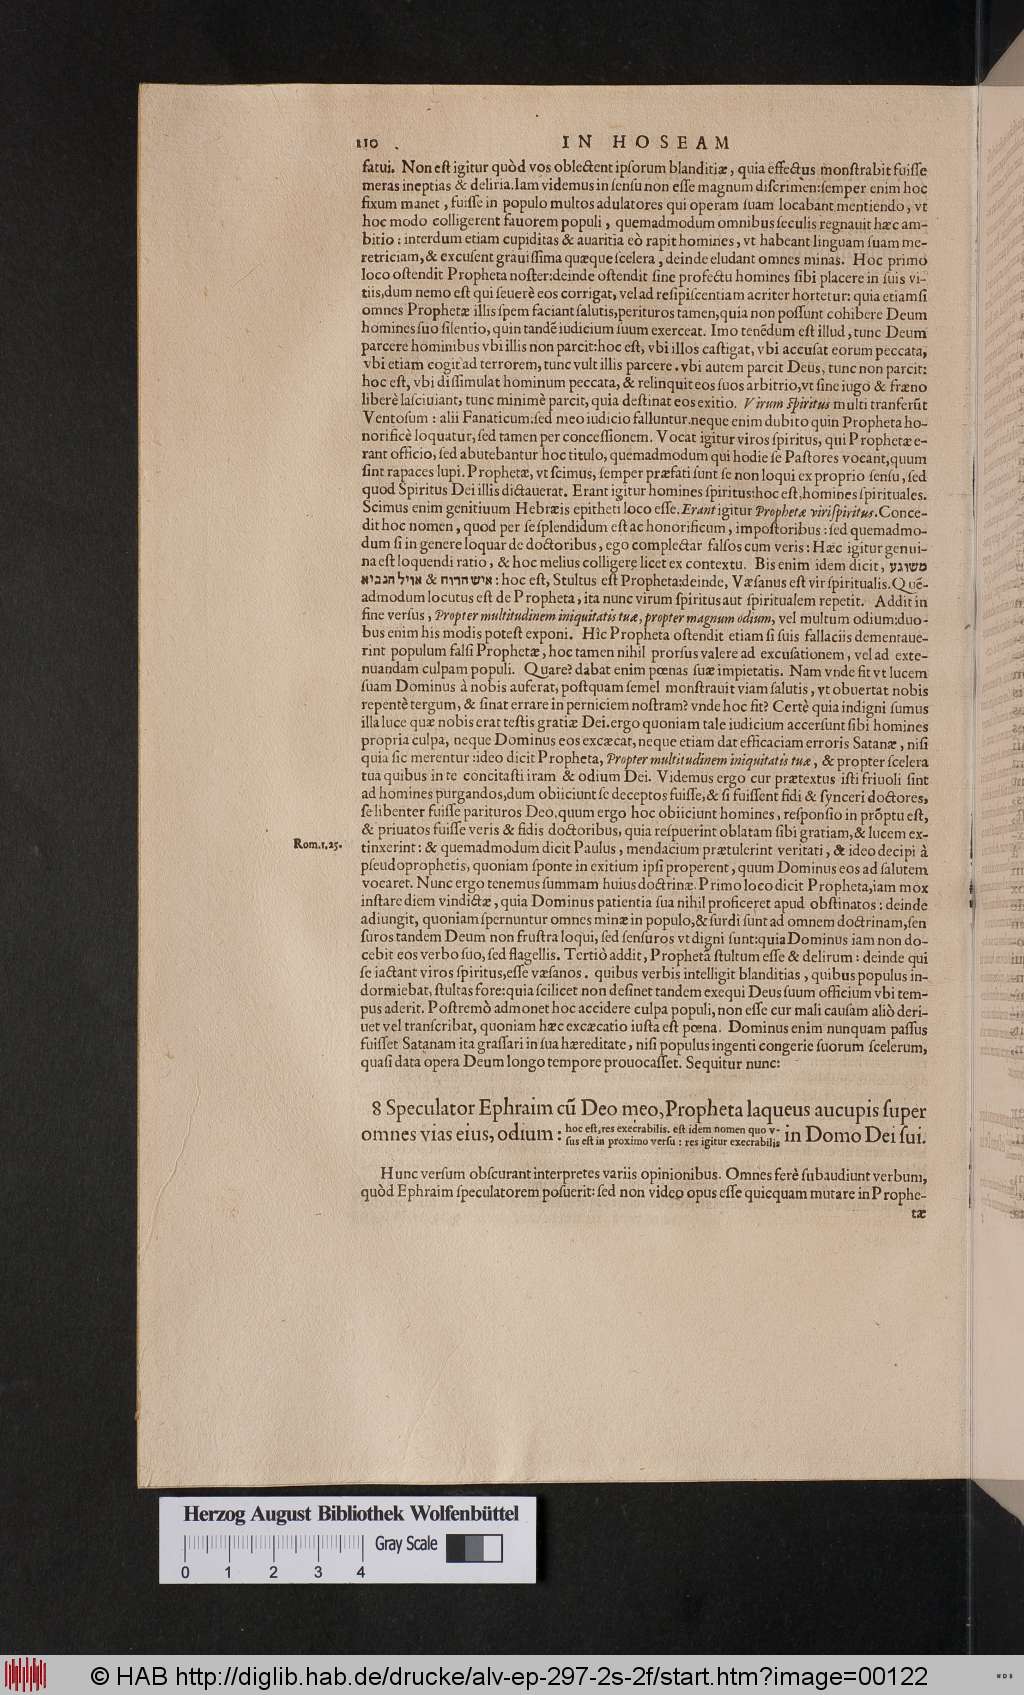 110 . IN HOSEAM
fatui. Non eſt igitur quòd vos oblectent ipſorum blanditiæ, quia effectus monſtrabit fuiſſe
meras ineptias & deliria. Iam videmus in ſenſu non eſſe magnum diſcrimen: ſemper enim hoc
fixum manet, fuiſſe in populo multos adulatores qui operam ſuam locabant mentiendo, vt
hoc modo colligerent fauorem populi, quemadmodum omnibus ſeculis regnauit hæc am-
bitio: interdum etiam cupiditas & auaritia eò rapit homines, vt habeant linguam ſuam me-
retriciam, & excuſent grauiſſima quæque ſcelera, deinde eludant omnes minas. Hoc primo
loco oſtendit Propheta noſter: deinde oſtendit ſine profectu homines ſibi placere in ſuis vi-
tiis, dum nemo eſt qui ſeuerè eos corrigat, vel ad reſipiſcentiam acriter hortetur: quia etiamſi
omnes Prophetæ illis ſpem faciant ſalutis, perituros tamen, quia non poſſunt cohibere Deum
homines ſuo ſilentio, quin tandẽ iudicium ſuum exerceat. Imo tenẽdum eſt illud, tunc Deum
parcere hominibus vbi illis non parcit: hoc eſt, vbi illos caſtigat, vbi accuſat eorum peccata,
vbi etiam cogit ad terrorem, tunc vult illis parcere. vbi autem parcit Deus, tunc non parcit:
hoc eſt, vbi diſſimulat hominum peccata, & relinquit eos ſuos arbitrio, vt ſine iugo & fræno
liberè laſciuiant, tunc minimè parcit, quia deſtinat eos exitio. Virum ſpiritus multi tranſerũt
Ventoſum: alii Fanaticum: ſed meo iudicio falluntur. neque enim dubito quin Propheta ho-
norificè loquatur, ſed tamen per conceſſionem. Vocat igitur viros ſpiritus, qui Prophetæ e-
rant officio, ſed abutebantur hoc titulo, quemadmodum qui hodie ſe Paſtores vocant, quum
ſint rapaces lupi. Prophetæ, vt ſcimus, ſemper præfati ſunt ſe non loqui ex proprio ſenſu, ſed
quod Spiritus Dei illis dictauerat. Erant igitur homines ſpiritus: hoc eſt, homines ſpirituales.
Scimus enim genitiuum Hebræis epitheti loco eſſe. Erant igitur Prophetæ viri ſpiritus. Conce-
dit hoc nomen, quod per ſe ſplendidum eſt ac honorificum, impoſtoribus: ſed quemadmo-
dum ſi in genere loquar de doctoribus, ego complectar falſos cum veris: Hæc igitur genui-
na eſt loquendi ratio, & hoc melius colligere licet ex contextu. Bis enim idem dicit, משוגע
איש הרוח & אויל הנביא: hoc eſt, Stultus eſt Propheta: deinde, Væſanus eſt vir ſpiritualis. Quẽ-
admodum locutus eſt de Propheta, ita nunc virum ſpiritus aut ſpiritualem repetit. Addit in
fine verſus, Propter multitudinem iniquitatis tuæ, propter magnum odium, vel multum odium: duo-
bus enim his modis poteſt exponi. Hîc Propheta oſtendit etiam ſi ſuis fallaciis dementaue-
rint populum falſi Prophetæ, hoc tamen nihil prorſus valere ad excuſationem, vel ad exte-
nuandam culpam populi. Quare? dabat enim pœnas ſuæ impietatis. Nam vnde fit vt lucem
ſuam Dominus à nobis auferat, poſtquam ſemel monſtrauit viam ſalutis, vt obuertat nobis
repentè tergum, & ſinat errare in perniciem noſtram? vnde hoc fit? Certè quia indigni ſumus
illa luce quæ nobis erat teſtis gratiæ Dei. ergo quoniam tale iudicium accerſunt ſibi homines
propria culpa, neque Dominus eos excæcat, neque etiam dat efficaciam erroris Satanæ, niſi
quia ſic merentur: ideo dicit Propheta, Propter multitudinem iniquitatis tuæ, & propter ſcelera
tua quibus in te concitaſti iram & odium Dei. Videmus ergo cur prætextus iſti friuoli ſint
ad homines purgandos, dum obiiciunt ſe deceptos fuiſſe, & ſi fuiſſent fidi & ſynceri doctores,
ſe libenter fuiſſe parituros Deo. quum ergo hoc obiiciunt homines, reſponſio in prõptu eſt,
& priuatos fuiſſe veris & fidis doctoribus, quia reſpuerint oblatam ſibi gratiam, & lucem ex-
Rom. 1, 25. tinxerint: & quemadmodum dicit Paulus, mendacium prætulerint veritati, & ideo decipi à
pſeudoprophetis, quoniam ſponte in exitium ipſi properent, quum Dominus eos ad ſalutem
vocaret. Nunc ergo tenemus ſummam huius doctrinæ. Primo loco dicit Propheta, iam mox
inſtare diem vindictæ, quia Dominus patientia ſua nihil proficeret apud obſtinatos: deinde
adiungit, quoniam ſpernuntur omnes minæ in populo, & ſurdi ſunt ad omnem doctrinam, ſen
ſuros tandem Deum non fruſtra loqui, ſed ſenſuros vt digni ſunt: quia Dominus iam non do-
cebit eos verbo ſuo, ſed flagellis. Tertiò addit, Prophetã ſtultum eſſe & delirum: deinde qui
ſe iactant viros ſpiritus, eſſe væſanos. quibus verbis intelligit blanditias, quibus populus in-
dormiebat, ſtultas fore: quia ſcilicet non deſinet tandem exequi Deus ſuum officium vbi tem-
pus aderit. Poſtremò admonet hoc accidere culpa populi, non eſſe cur mali cauſam aliò deri-
uet vel tranſcribat, quoniam hæc excæcatio iuſta eſt pœna. Dominus enim nunquam paſſus
fuiſſet Satanam ita graſſari in ſua hæreditate, niſi populus ingenti congerie ſuorum ſcelerum,
quaſi data opera Deum longo tempore prouocaſſet. Sequitur nunc:
8 Speculator Ephraim cũ Deo meo, Propheta laqueus aucupis ſuper
omnes vias eius, odium: hoc eſt, res execrabilis. eſt idem nomen quo v-ſus eſt in proximo verſu: res igitur execrabilis in Domo Dei ſui.
Hunc verſum obſcurant interpretes variis opinionibus. Omnes ferè ſubaudiunt verbum,
quòd Ephraim ſpeculatorem poſuerit: ſed non video opus eſſe quicquam mutare in Prophe-
tæ
Herzog August Bibliothek Wolfenbüttel
Gray Scale
0 1 2 3 4
© HAB http://diglib.hab.de/drucke/alv-ep-297-2s-2f/start.htm?image=00122